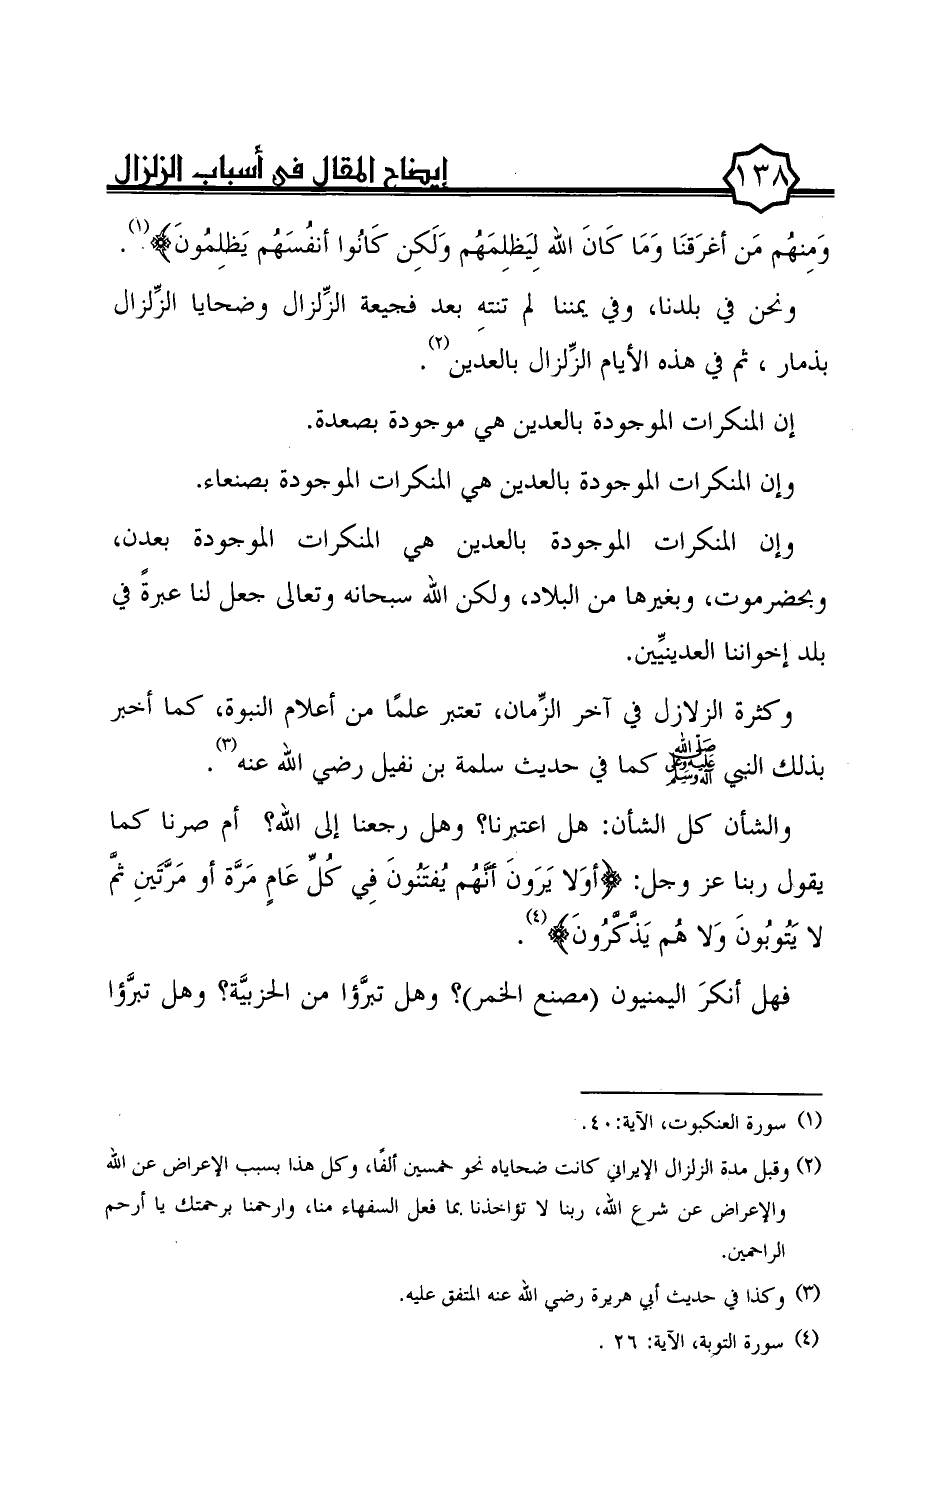 ١٣٨ إيضاح المقال في أسباب الزلزال
وَمِنهُم مَن أغرَقنَا وَمَا كَانَ الله لِيَظلِمَهُم وَلَكِن كَانُوا أنفُسَهُم يَظلِمُونَ﴾(١).
ونحن في بلدنا، وفي يمننا لم تنتهِ بعد فجيعة الزِّلزال وضحايا الزِّلزال
بذمار ، ثم في هذه الأيام الزِّلزال بالعدين(٢).
إن المنكرات الموجودة بالعدين هي موجودة بصعدة.
وإن المنكرات الموجودة بالعدين هي المنكرات الموجودة بصنعاء.
وإن المنكرات الموجودة بالعدين هي المنكرات الموجودة بعدن،
وبحضرموت، وبغيرها من البلاد، ولكن الله سبحانه وتعالى جعل لنا عبرةً في
بلد إخواننا العدينيِّين.
وكثرة الزلازل في آخر الزَّمان، تعتبر علمًا من أعلام النبوة، كما أخبر
بذلك النبي ﷺ كما في حديث سلمة بن نفيل رضي الله عنه(٣).
والشأن كل الشأن: هل اعتبرنا؟ وهل رجعنا إلى الله؟ أم صرنا كما
يقول ربنا عز وجل: ﴿أوَلا يَرَونَ أنَّهُم يُفتَنُونَ فِي كُلِّ عَامٍ مَرَّة أو مَرَّتَينِ ثمَّ
لا يَتُوبُونَ وَلا هُم يَذَّكَّرُونَ﴾(٤).
فهل أنكرَ اليمنيون (مصنع الخمر)؟ وهل تبرَّؤا من الحزبيَّة؟ وهل تبرَّؤا
(١) سورة العنكبوت، الآية:٤٠.
(٢) وقبل مدة الزلزال الإيراني كانت ضحاياه نحو خمسين ألفًا، وكل هذا بسبب الإعراض عن الله
والإعراض عن شرع الله، ربنا لا تؤاخذنا بما فعل السفهاء منا، وارحمنا برحمتك يا أرحم
الراحمين.
(٣) وكذا في حديث أبي هريرة رضي الله عنه المتفق عليه.
(٤) سورة التوبة، الآية: ٢٦ .